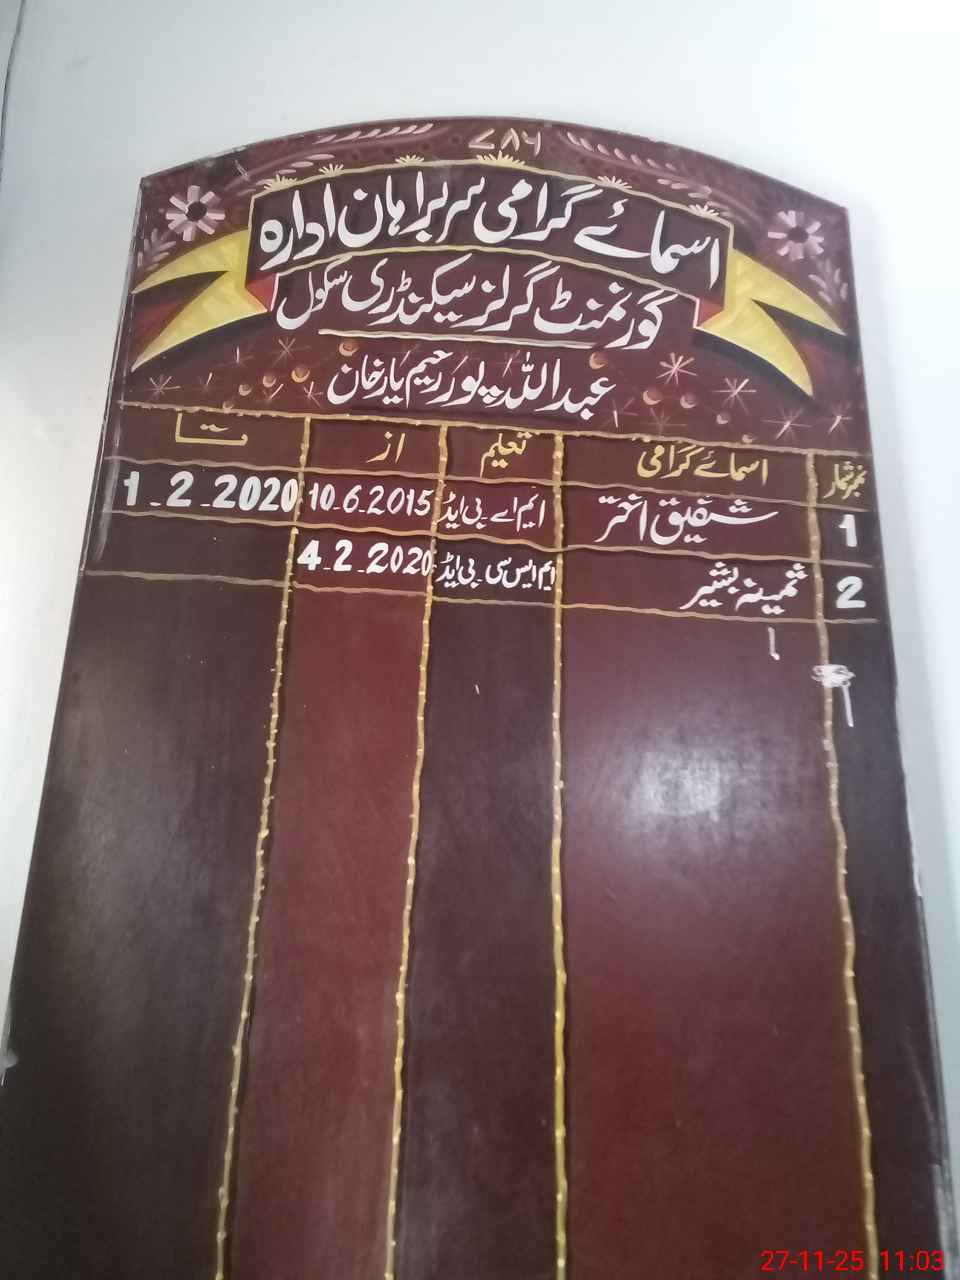 ۷۸۶
اسمائے گرامی سربراہان ادارہ
گورنمنٹ گرلز سیکنڈری سکول
عبداللہ پور رحیم یار خان
نمبر شمار اسمائے گرامی تعلیم از تا
1 شفیق اختر ایم اے۔بی ایڈ 10.6.2015 1.2.2020
2 ثمینہ بشیر ایم ایس سی۔بی ایڈ 4.2.2020
27-11-25 11:03